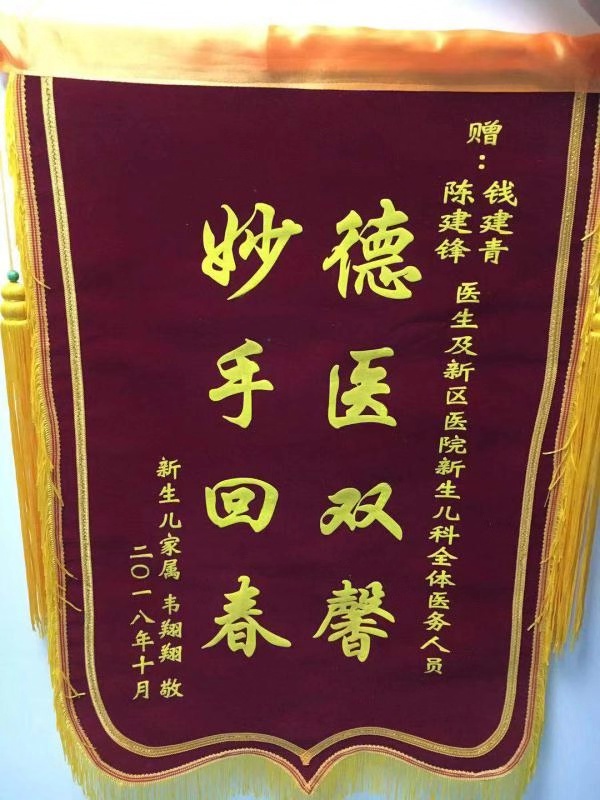 赠：钱建青
陈建锋
医生及新区医院新生儿科全体医务人员
德医双馨
妙手回春
新生儿家属 韦翔翔 敬
二〇一八年十月